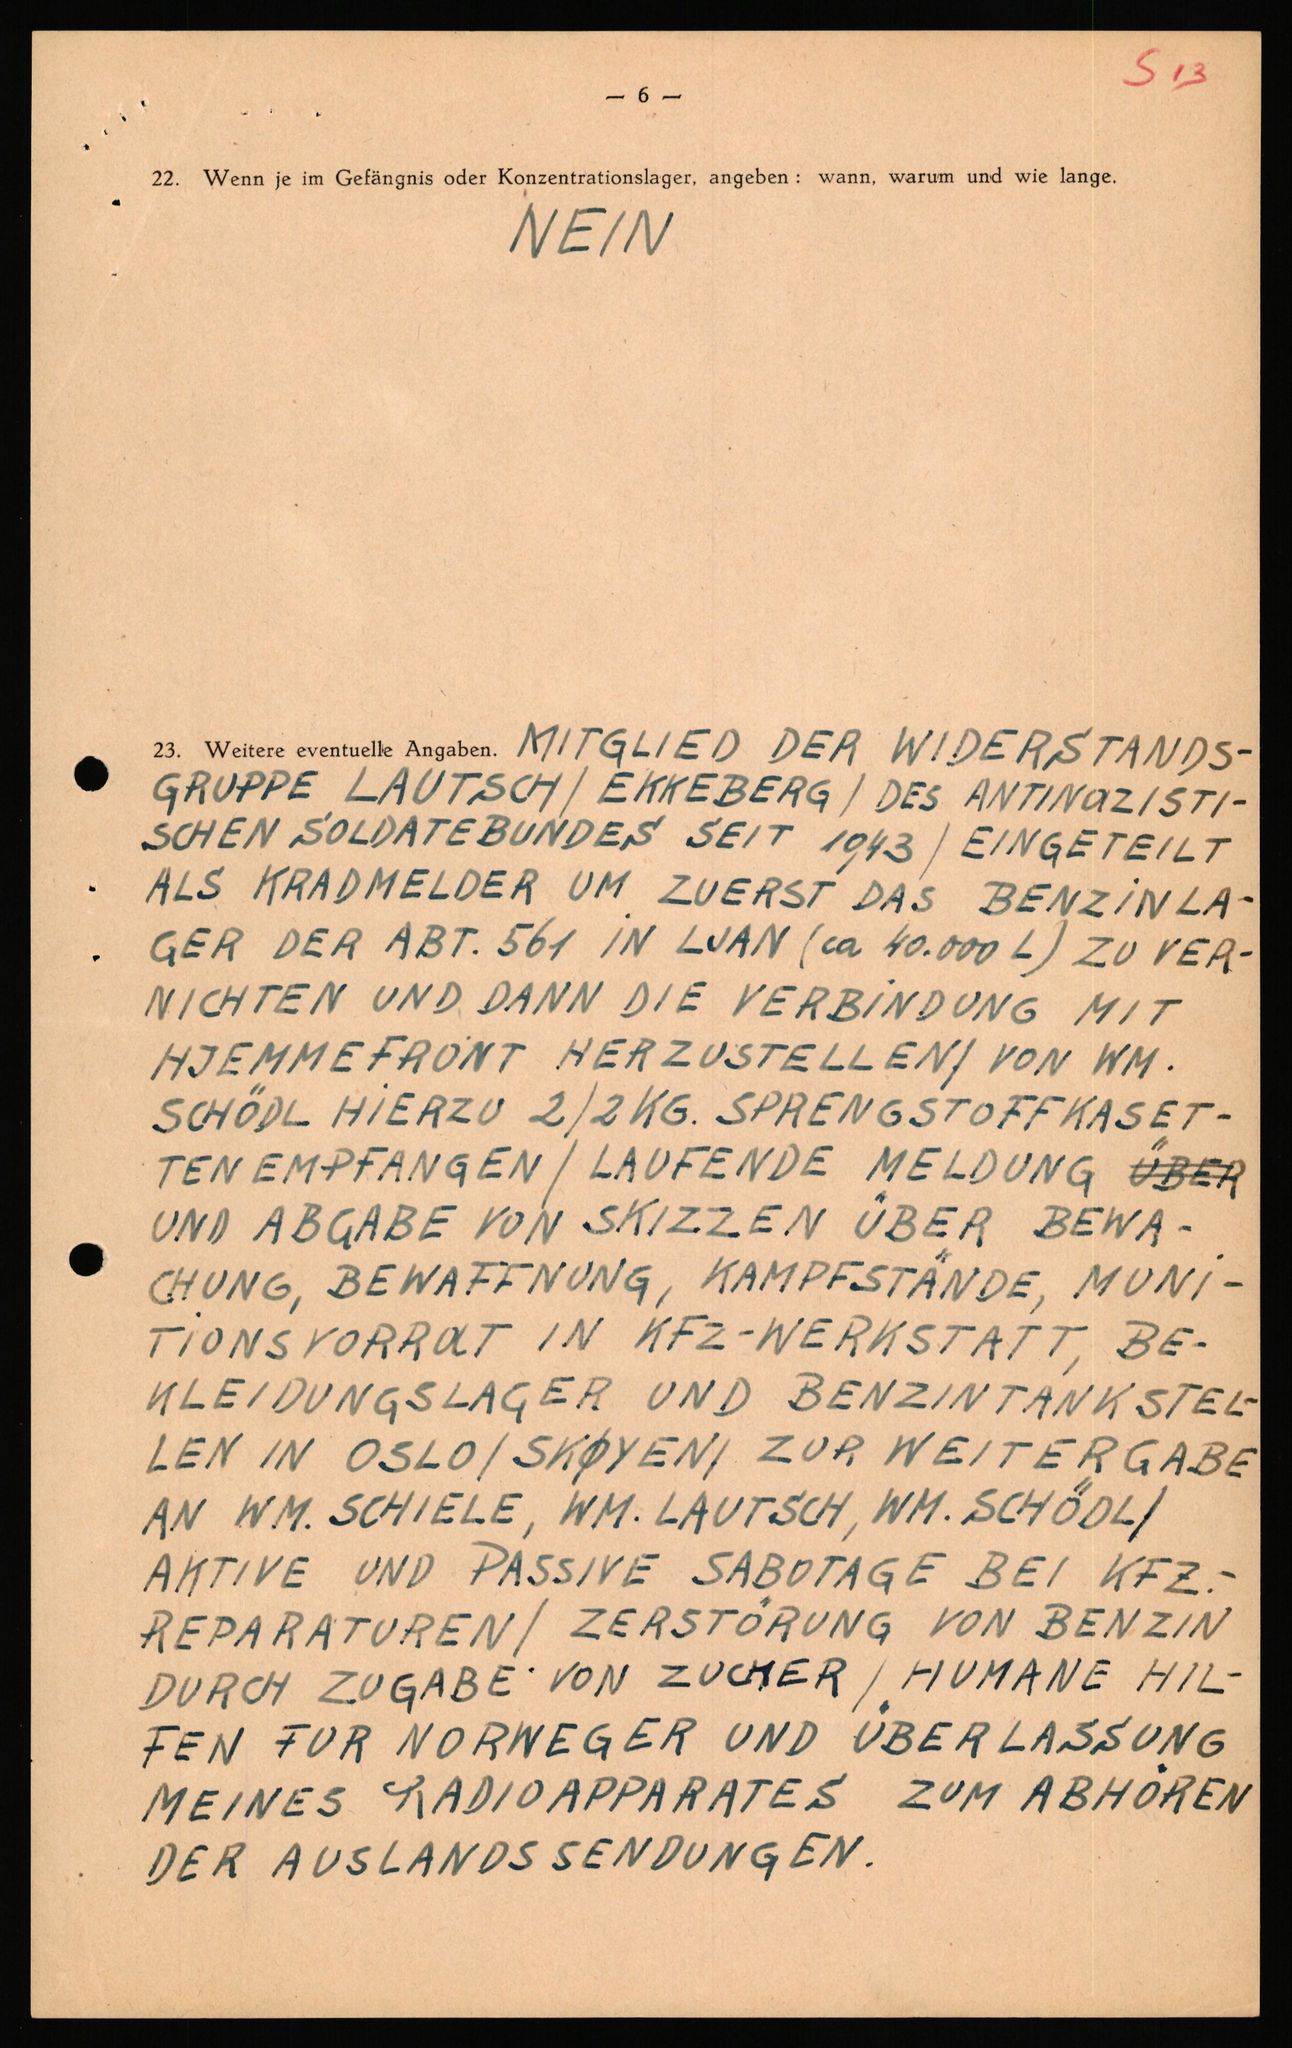 S 13
— 6 —
22. Wenn je im Gefängnis oder Konzentrationslager, angeben: wann, warum und wie lange.
NEIN
23. Weitere eventuelle Angaben. MITGLIED DER WIDERSTANDS-
GRUPPE LAUTSCH/EKKEBERG/DES ANTINaZISTI-
SCHEN SOLDATEBUNDES SEIT 1943/EINGETEILT
ALS KRADMELDER UM ZUERST DAS BENZINLA-
GER DER ABT. 561 IN LJAN (ca 40.000 L) ZU VER-
NICHTEN UND DANN DIE VERBINDUNG MIT
HJEMMEFRONT HERZUSTELLEN/VON WM.
SCHÖDL HIERZU 2/2KG. SPRENGSTOFFKASET-
TEN EMPFANGEN/LAUFENDE MELDUNG ÜBER
UND ABGABE VON SKIZZEN ÜBER BEWA-
CHUNG, BEWAFFNUNG, KAMPFSTÄNDE, MUNI-
TIONSVORRaT IN KFZ-WERKSTATT, BE-
KLEIDUNGSLAGER UND BENZINTANKSTEL-
LEN IN OSLO/SKØYEN/ZUR WEITERGABE
AN WM. SCHIELE, WM. LAUTSCH, WM. SCHÖDL/
AKTIVE UND PASSIVE SABOTAGE BEI KFZ.-
REPARATUREN/ZERSTÖRUNG VON BENZIN
DURCH ZUGABE VON ZUCKER/HUMANE HIL-
FEN FUR NORWEGER UND ÜBERLASSUNG
MEINES RADIOAPPARATES ZUM ABHÖREN
DER AUSLANDSSENDUNGEN.